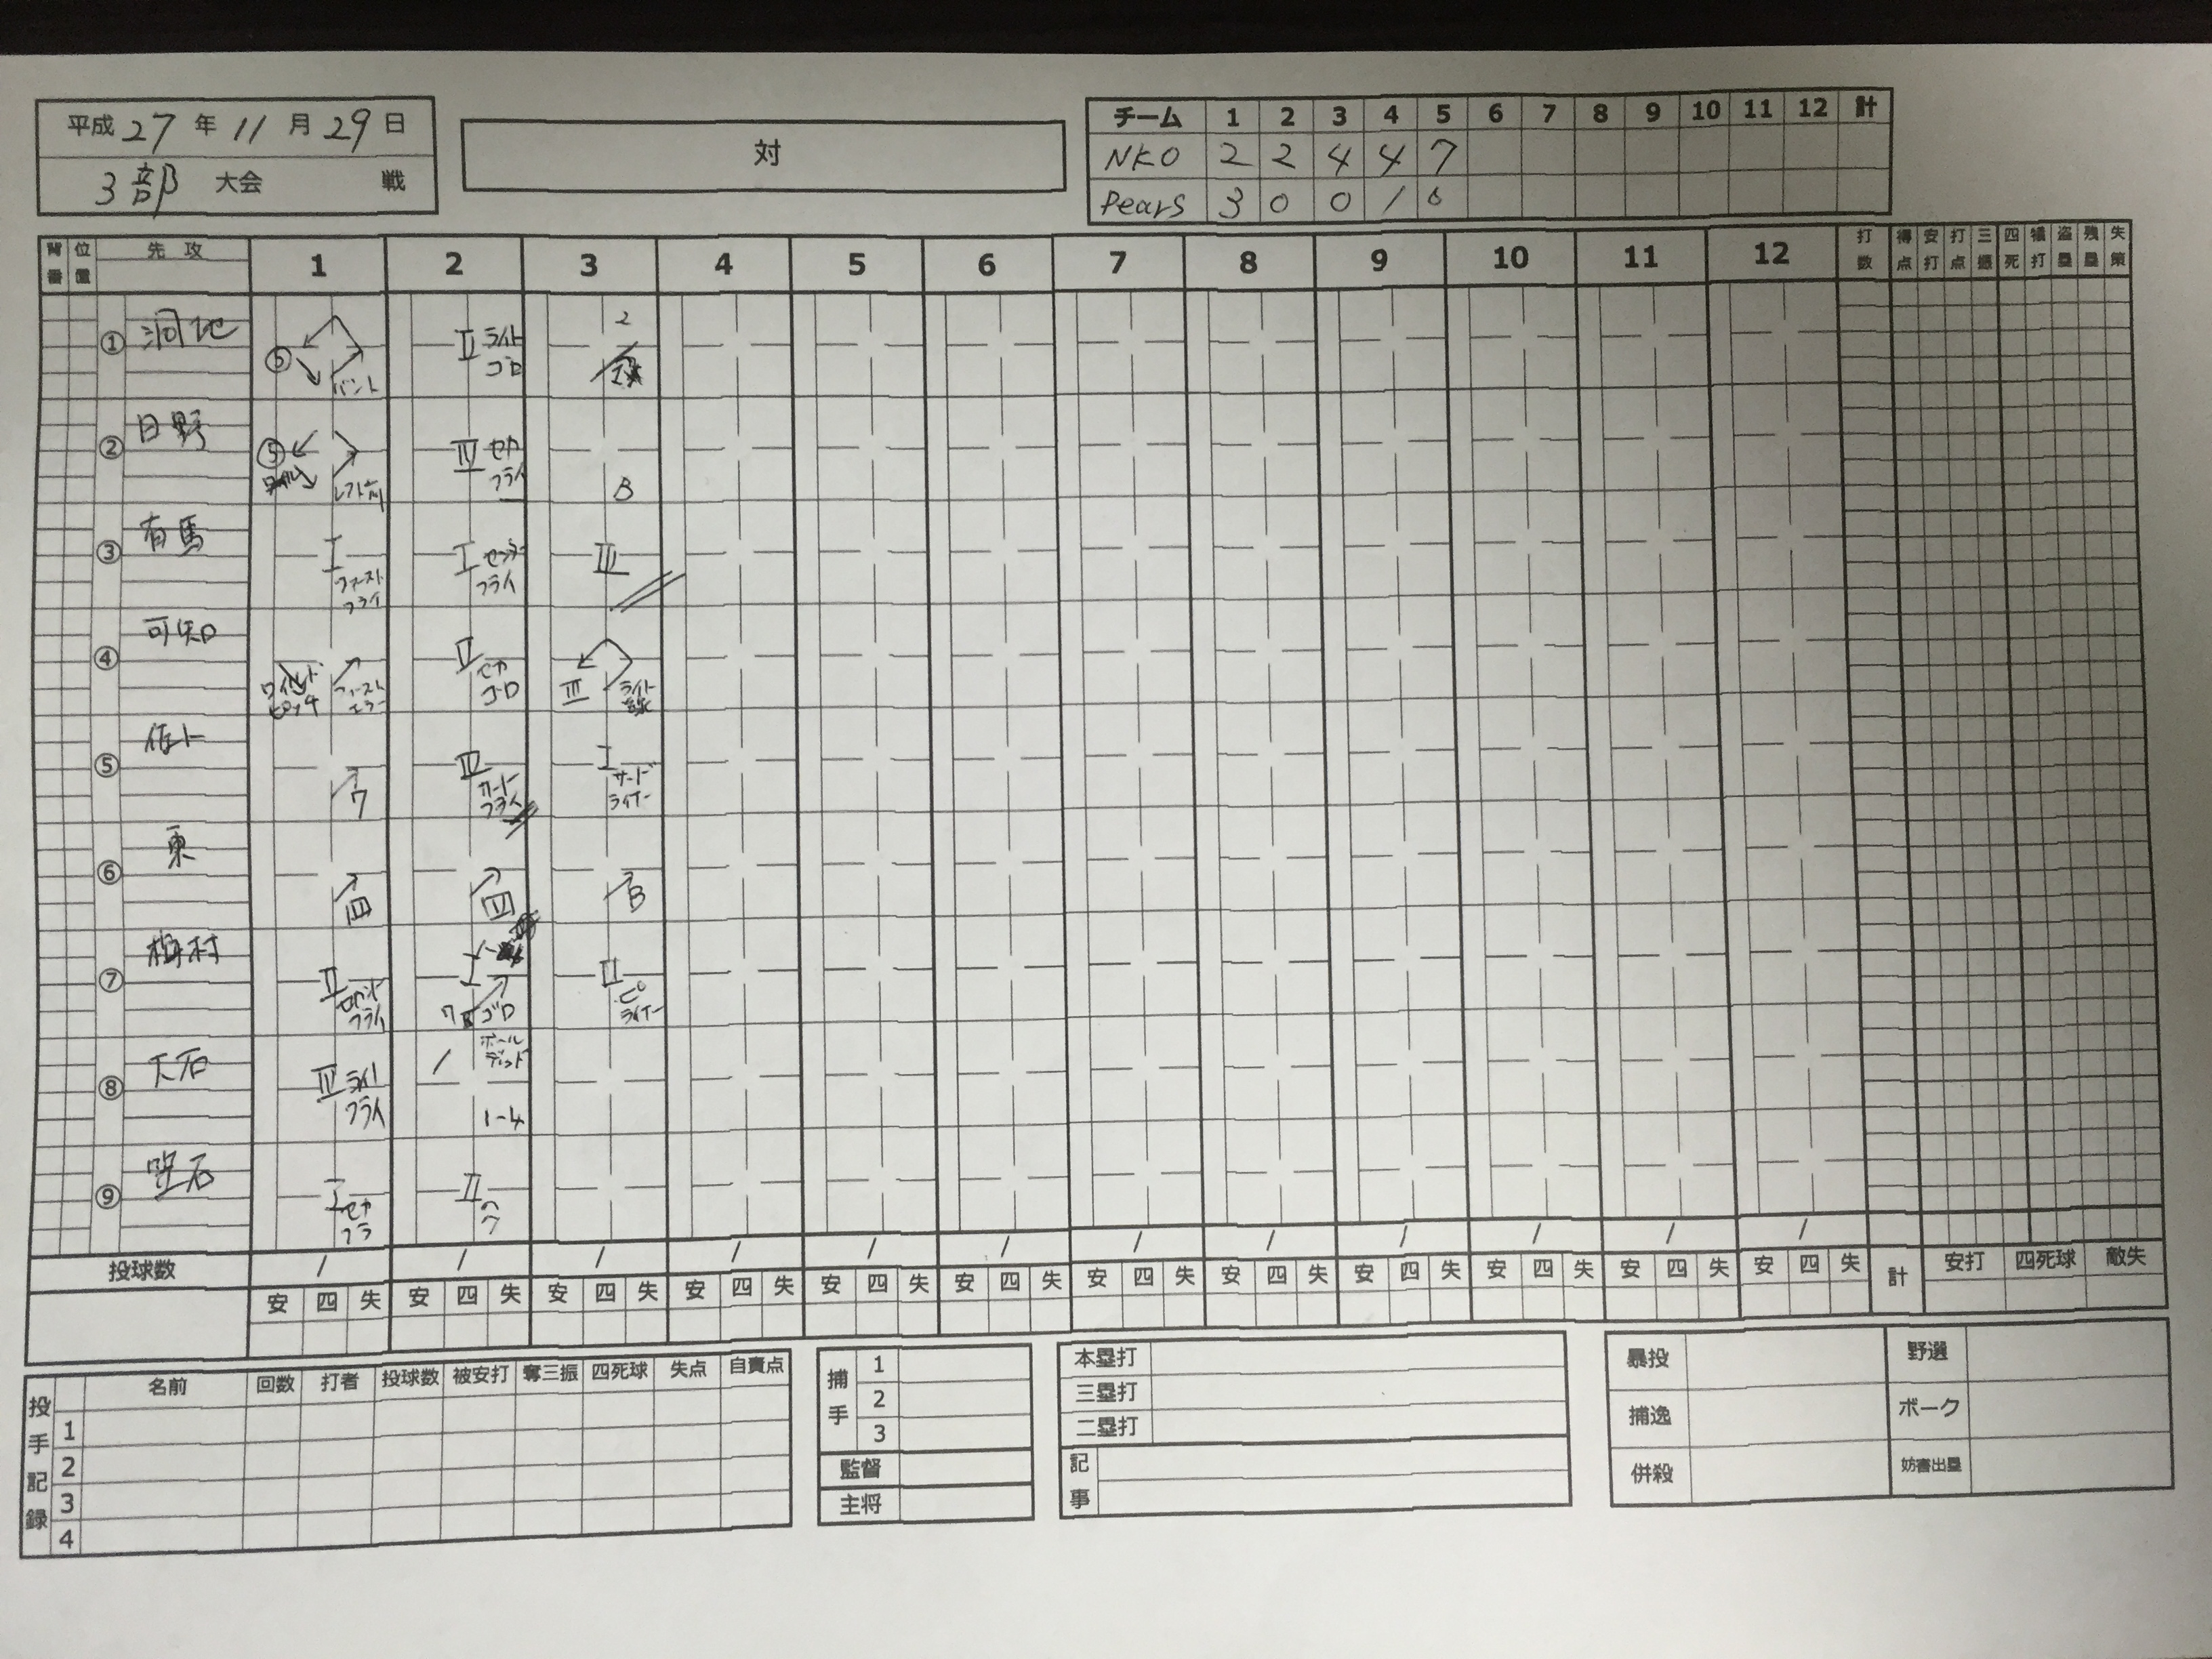 平成 27 年 11 月 29 日
3部 大会 戦
対
チーム 1 2 3 4 5 6 7 8 9 10 11 12 計
NKO 2 2 4 4 7
Pears 3 0 0 1 0
背番 位置 先攻 1 2 3 4 5 6 7 8 9 10 11 12 打数 得点 安打 打点 三振 四死 犠打 盗塁 残塁 失策
① 洞地 ⑤ バント Ⅱ ライト ゴロ 2
② 日野 ⑤ レフト前 Ⅲ セカ フライ B
③ 有馬 Ⅰ ファースト フライ Ⅰ センター フライ Ⅲ
④ 可知 ワイルド ピッチ ファースト エラー Ⅱ セカ ゴロ Ⅲ ライト
⑤ Ⅲ フライ Ⅰ サード ライナー
⑥ 東 四 四 B
⑦ 梅村 Ⅱ フライ Ⅰ ゴロ Ⅱ ピ ライナー
⑧ 大石 Ⅲ ライト フライ ボール デッド 1-4
⑨ Ⅰ セカ フラ Ⅱ
投球数 / / / / / / / / / / / /
安 四 失 安 四 失 安 四 失 安 四 失 安 四 失 安 四 失 安 四 失 安 四 失 安 四 失 安 四 失 安 四 失 安 四 失 計 安打 四死球 敵失
投手記録 名前 回数 打者 投球数 被安打 奪三振 四死球 失点 自責点
1
2
3
4
捕手 1
2
3
監督
主将
本塁打
三塁打
二塁打
記事
暴投 野選
捕逸 ボーク
併殺 妨害出塁